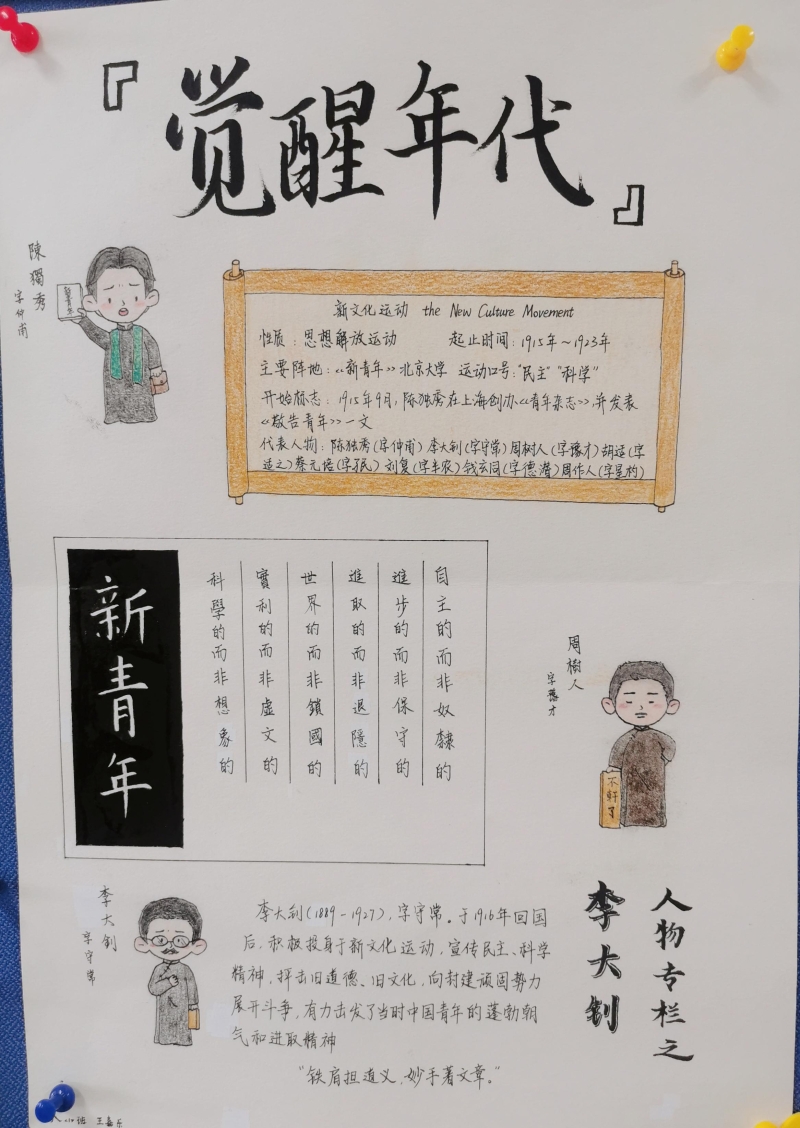 『觉醒年代』
陳獨秀
字仲甫
新青年
新文化运动 the New Culture Movement
性质：思想解放运动 起止时间：1915年～1923年
主要阵地：《新青年》北京大学 运动口号："民主""科学"
开始标志：1915年9月，陈独秀在上海创办《青年杂志》，并发表
《敬告青年》一文
代表人物：陈独秀(字仲甫)李大钊(字守常)周树人(字豫才)胡适(字
适之)蔡元培(字孑民)刘复(字半农)钱玄同(字德潜)周作人(字星杓)
新青年
自主的而非奴隸的
進步的而非保守的
進取的而非退隱的
世界的而非鎖國的
實利的而非虛文的
科學的而非想象的
周樹人
字豫才
不干了
人物专栏之
李大钊
李大钊
字守常
李大钊(1889-1927)，字守常。于1916年回国
后，积极投身于新文化运动，宣传民主、科学
精神，抨击旧道德、旧文化，向封建顽固势力
展开斗争，有力击发了当时中国青年的蓬勃朝
气和进取精神
"铁肩担道义，妙手著文章。"